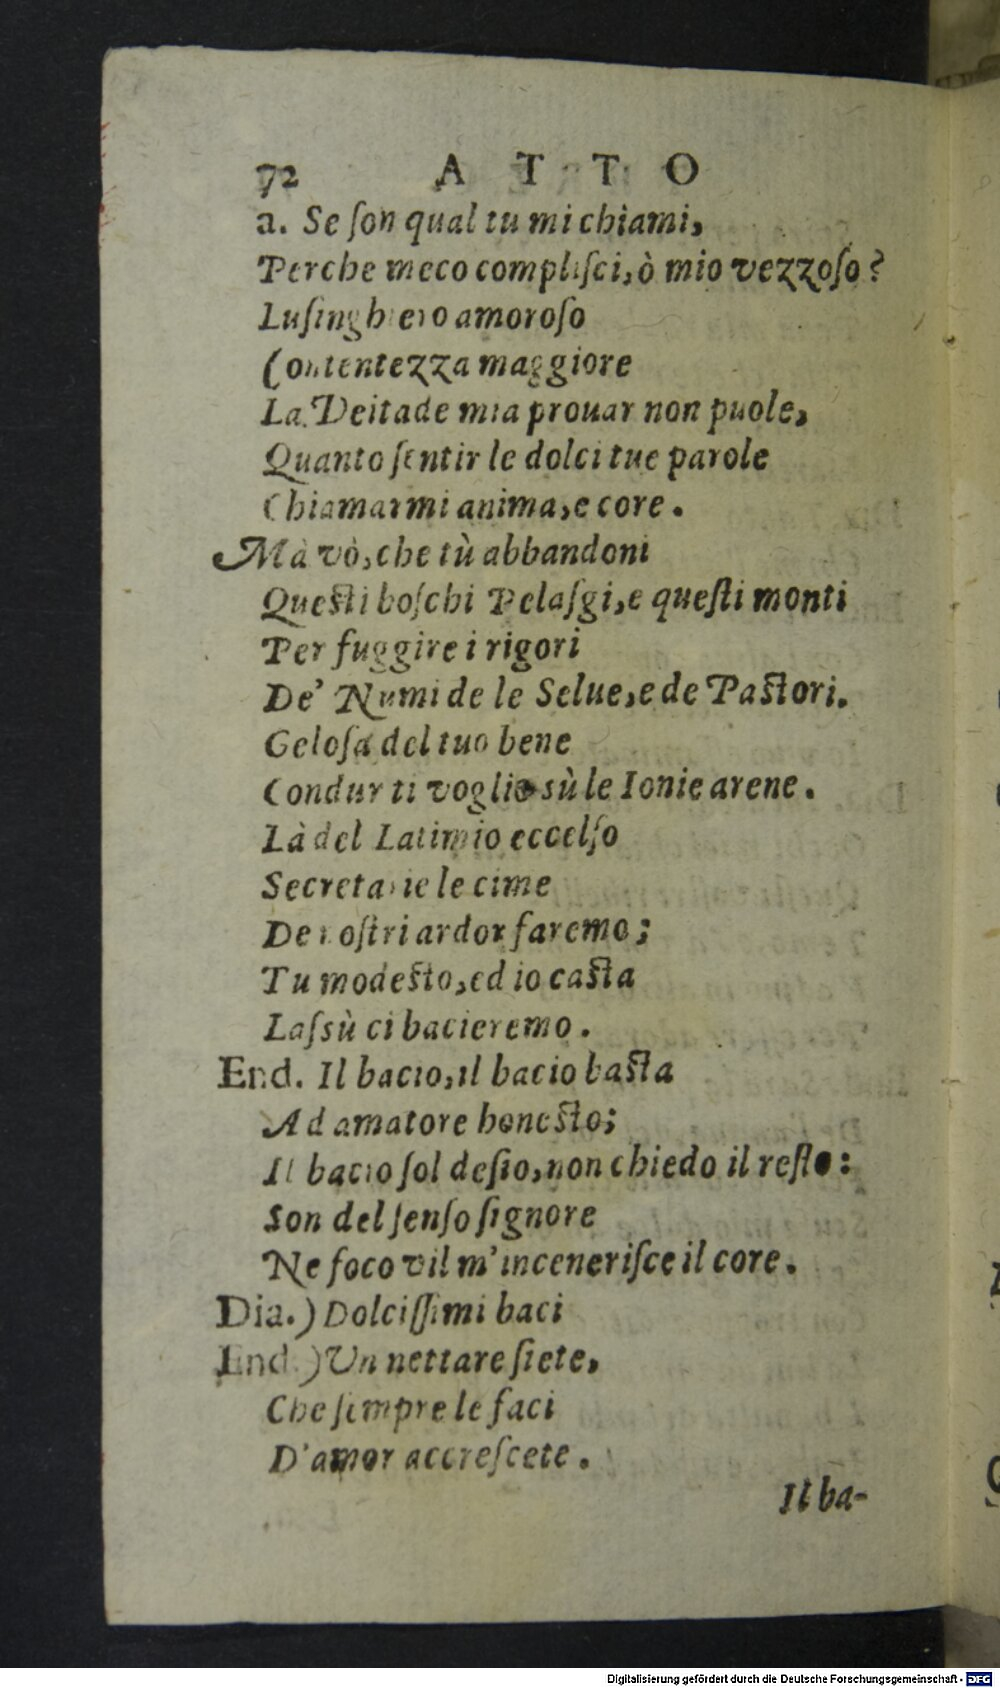 72 ATTO
a. Se ſon qual tu mi chiami,
Perche meco compliſci, ò mio vezzoſo?
Luſinghiero amoroſo
Contentezza maggiore
La Deitade mia prouar non puole,
Quanto ſentir le dolci tue parole
Chiamarmi anima, e core.
Mà vò, che tù abbandoni
Queſti boſchi Pelaſgi, e queſti monti
Per fuggire i rigori
De' Numi de le Selue, e de Paſtori.
Geloſa del tuo bene
Condur ti voglio sù le Ionie arene.
Là del Latimio eccelſo
Secretarie le cime
De noſtri ardor faremo;
Tu modeſto, ed io caſta
Laſsù ci bacieremo.
End. Il bacio, il bacio baſta
Ad amatore honeſto;
Il bacio ſol deſio, non chiedo il reſto:
Son del ſenſo ſignore
Ne foco vil m'inceneriſce il core.
Dia.) Dolciſſimi baci
End.) Vn nettare ſiete,
Che ſempre le faci
D'amor accreſcete.
Il ba-
Digitalisierung gefördert durch die Deutsche Forschungsgemeinschaft - DFG